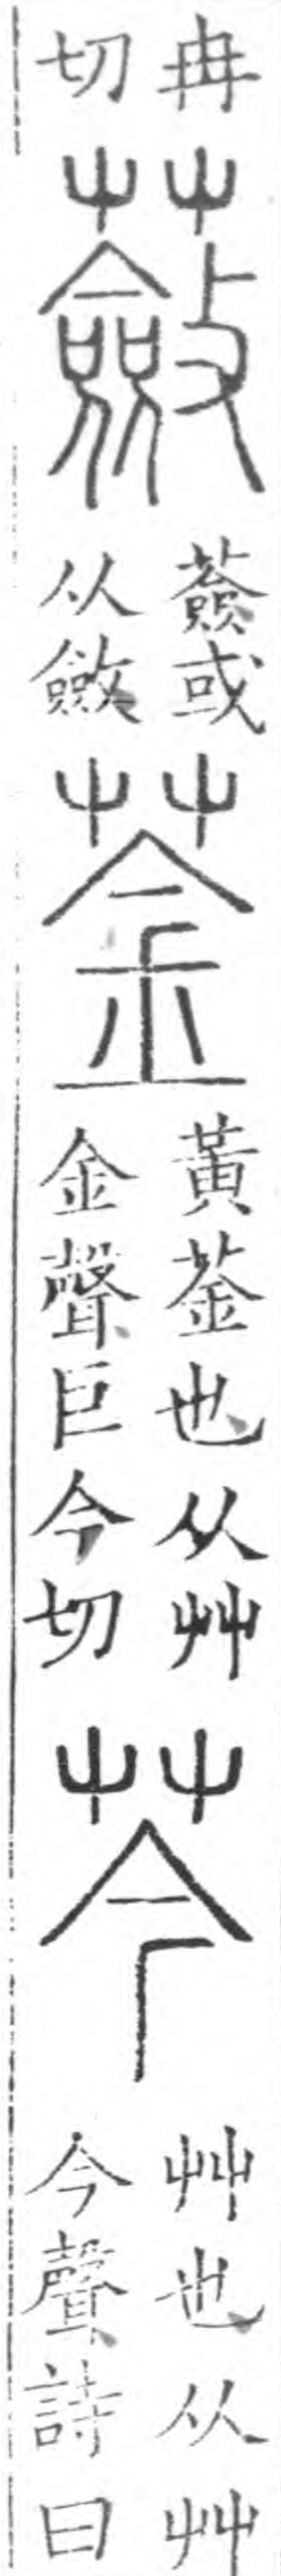 冉
切
蘞
薟或
从斂
菳
黃菳也从艸
金聲巨今切
芩
艸也从艸
今聲詩曰